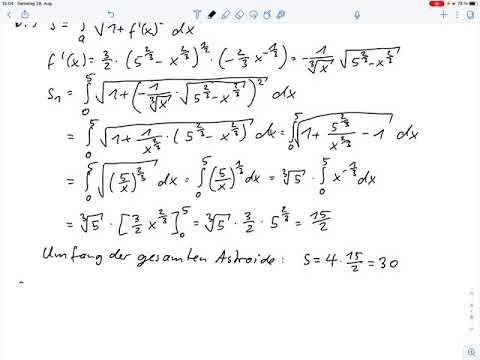 15:04 Samstag 29. Aug.
78 %
S = ∫ₐ √(1+f'(x)²) dx
f'(x) = 3/2 · (5^(2/3) − x^(2/3))^(1/2) · (−2/3 x^(−1/3)) = −1/∛x √(5^(2/3) − x^(2/3))
S₁ = ∫₀⁵ √(1+(−1/∛x · √(5^(2/3) − x^(2/3)))²) dx
= ∫₀⁵ √(1 + 1/x^(2/3) · (5^(2/3) − x^(2/3))) dx = ∫₀⁵ √(1 + 5^(2/3)/x^(2/3) − 1) dx
= ∫₀⁵ √((5/x)^(2/3)) dx = ∫₀⁵ (5/x)^(1/3) dx = ∛5 · ∫₀⁵ x^(−1/3) dx
= ∛5 · [3/2 x^(2/3)]₀⁵ = ∛5 · 3/2 · 5^(2/3) = 15/2
Umfang der gesamten Astroide: S = 4 · 15/2 = 30